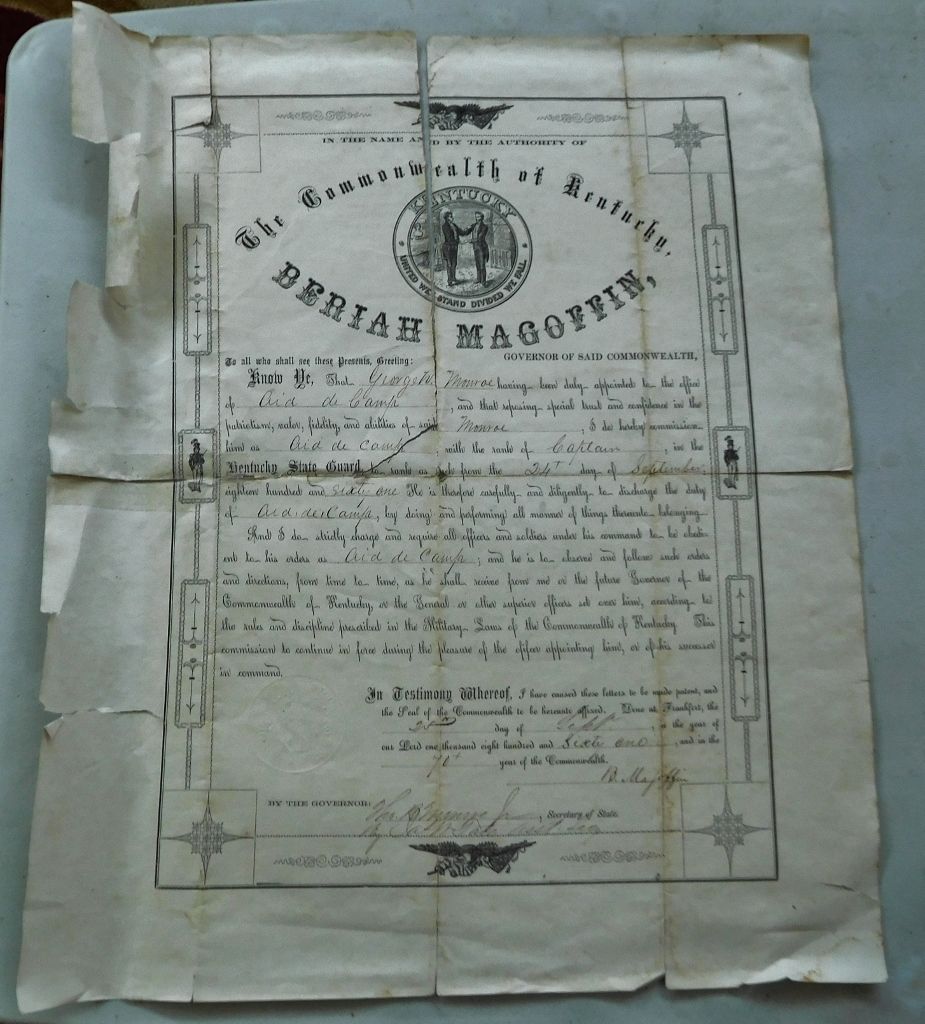 IN THE NAME AND BY THE AUTHORITY OF
The Commonwealth of Kentucky,
KENTUCKY
UNITED WE STAND DIVIDED WE FALL
BERIAH MAGOFFIN,
GOVERNOR OF SAID COMMONWEALTH,
To all who shall see these Presents, Greeting:
Know Ye, That George W. Monroe having been duly appointed to the office
of Aid de Camp, and that reposing special trust and confidence in the
patriotism, valor, fidelity, and abilities of said Monroe, I do hereby commission
him as Aid de Camp, with the rank of Captain, in the
Kentucky State Guard, to rank as such from the 24th day of September,
eighteen hundred and sixty one He is therefore carefully and diligently to discharge the duty
of Aid de Camp, by doing and performing all manner of things thereunto belonging
And I do strictly charge and require all officers and soldiers under his command to be obedi-
ent to his orders as Aid de Camp; and he is to observe and follow such orders
and directions, from time to time, as he shall receive from me or the future Governor of the
Commonwealth of Kentucky, or the General or other superior officers set over him, according to
the rules and discipline prescribed in the Military Laws of the Commonwealth of Kentucky This
commission to continue in force during the pleasure of the officer appointing him, or of his successor
in command.
In Testimony Whereof, I have caused these letters to be made patent, and
the Seal of the Commonwealth to be hereunto affixed. Done at Frankfort, the
day of Sept., in the year of
our Lord one thousand eight hundred and Sixty one, and in the
70th year of the Commonwealth.
B. Magoffin
BY THE GOVERNOR:
Tho. B. Monroe Jr, Secretary of State.
By